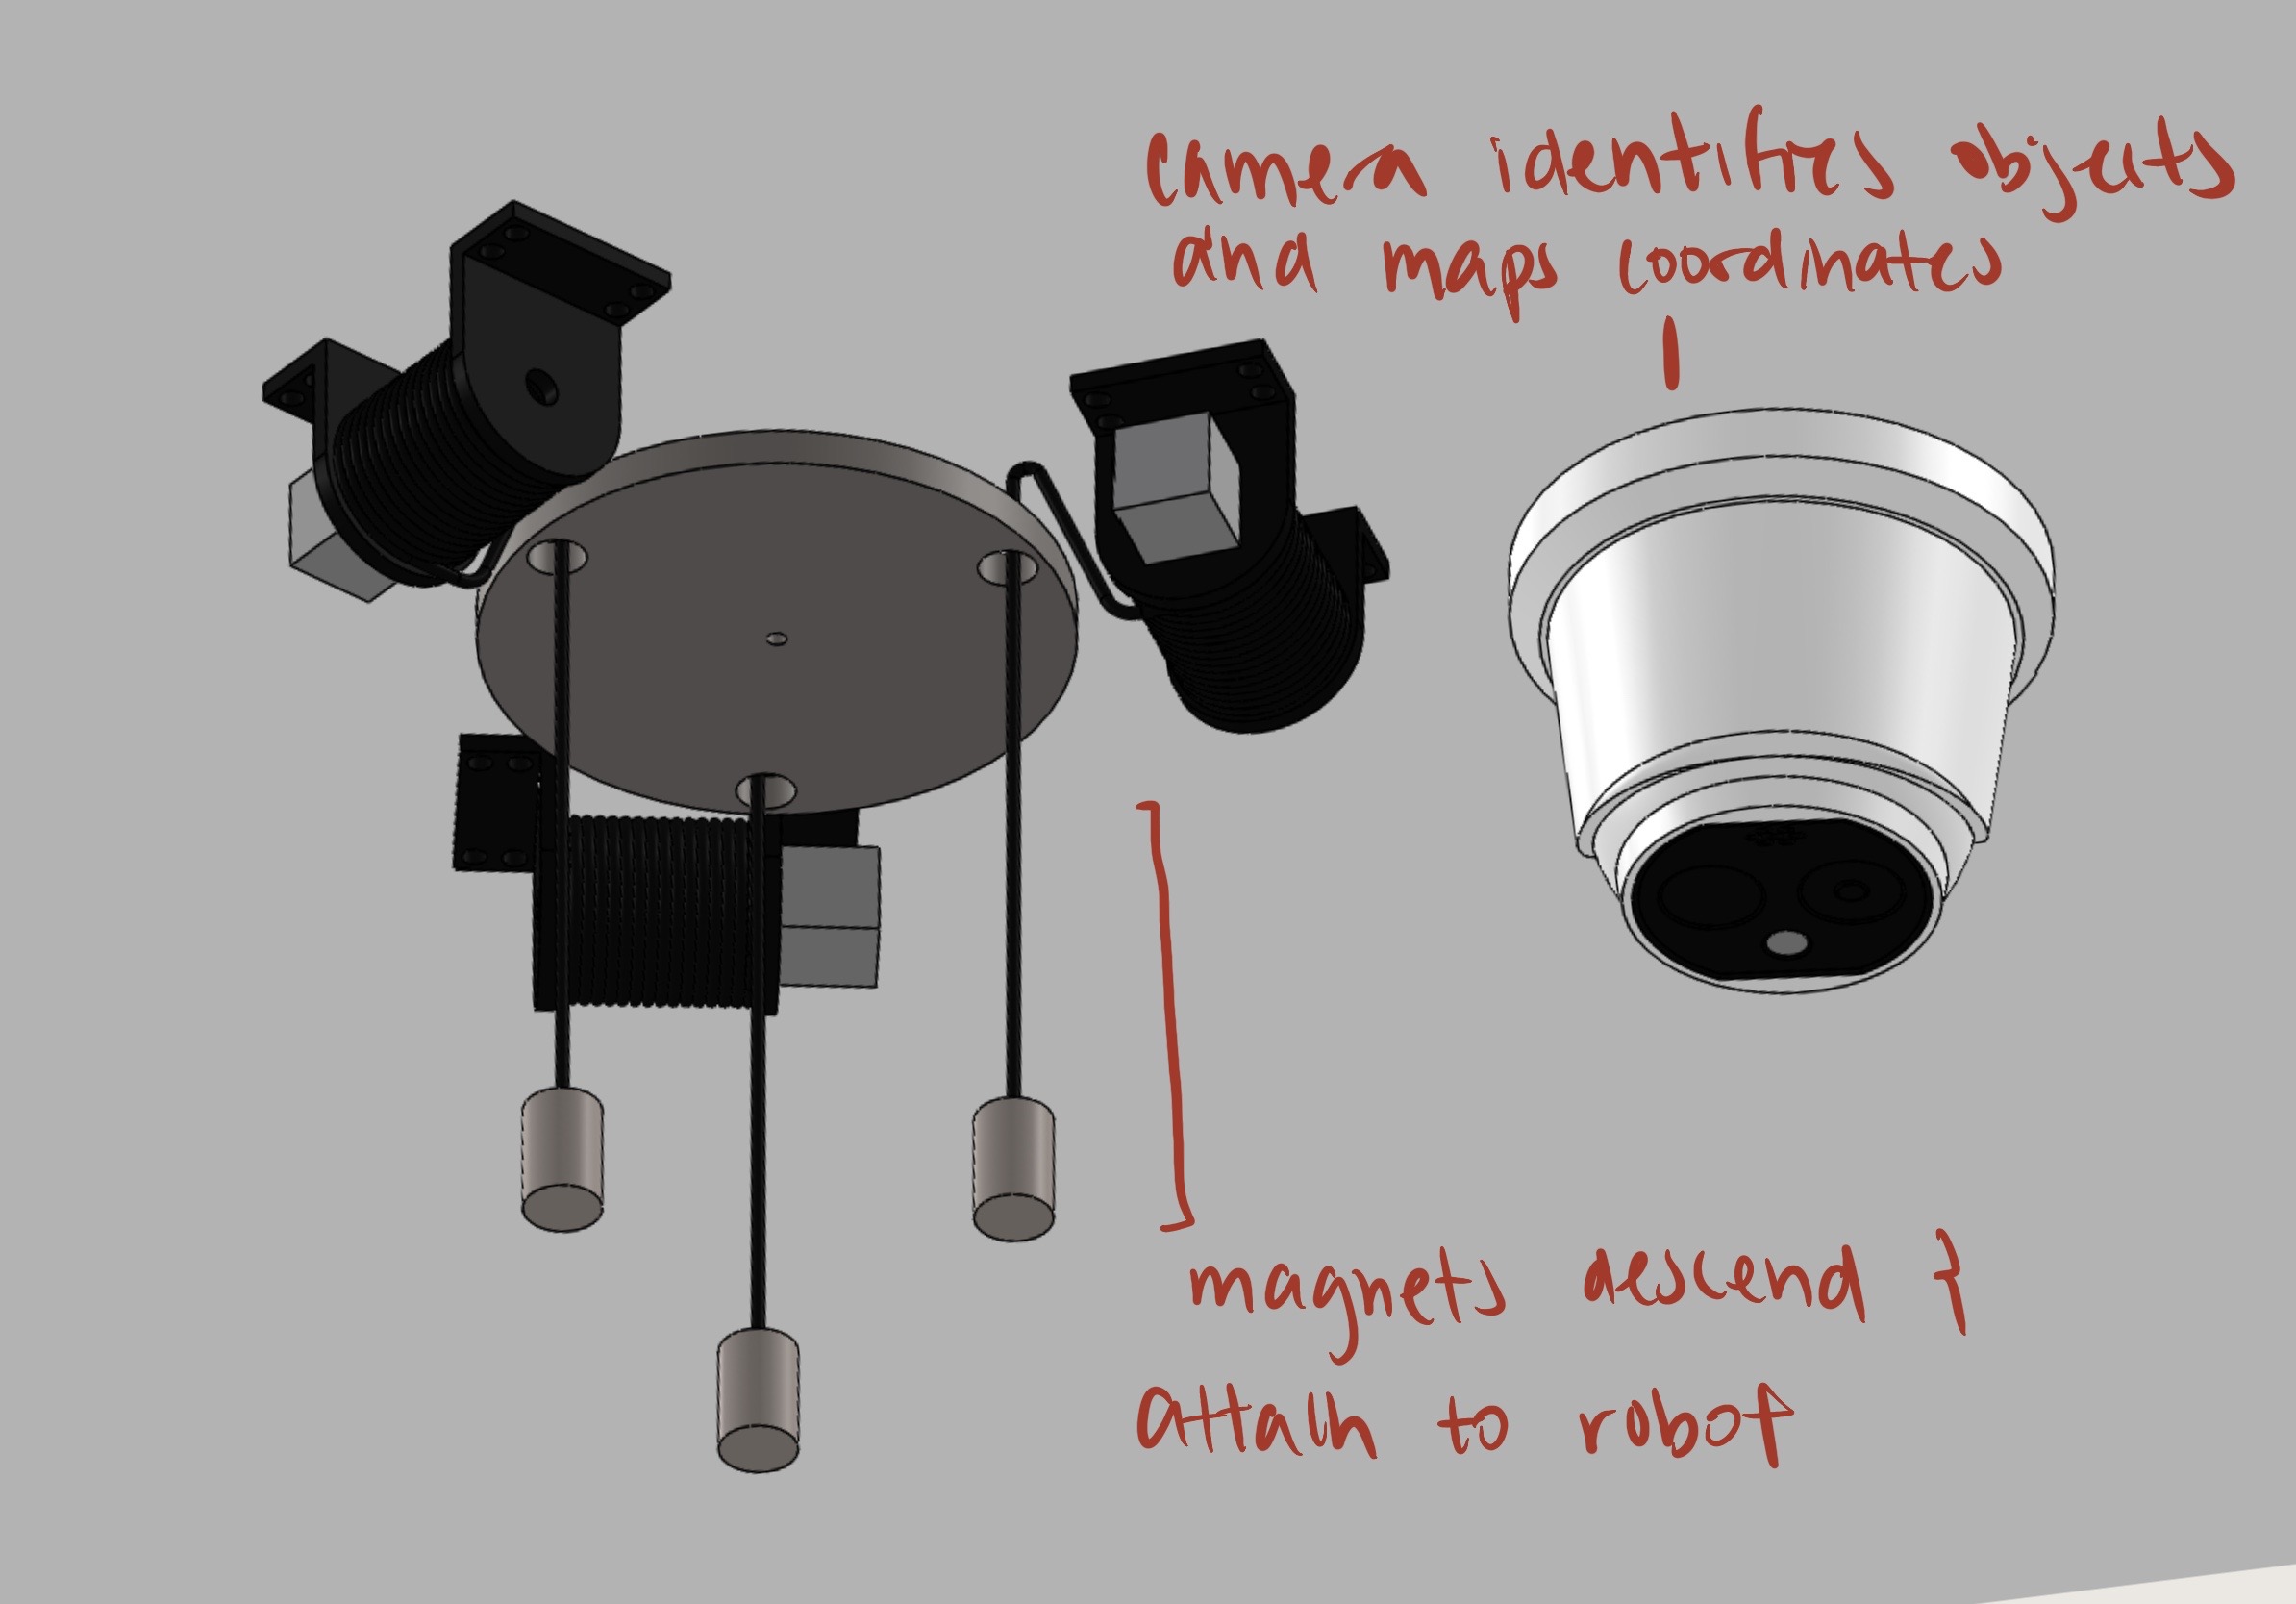 Camera identifies objects
and maps coordinates
magnets descend }
Attach to robot